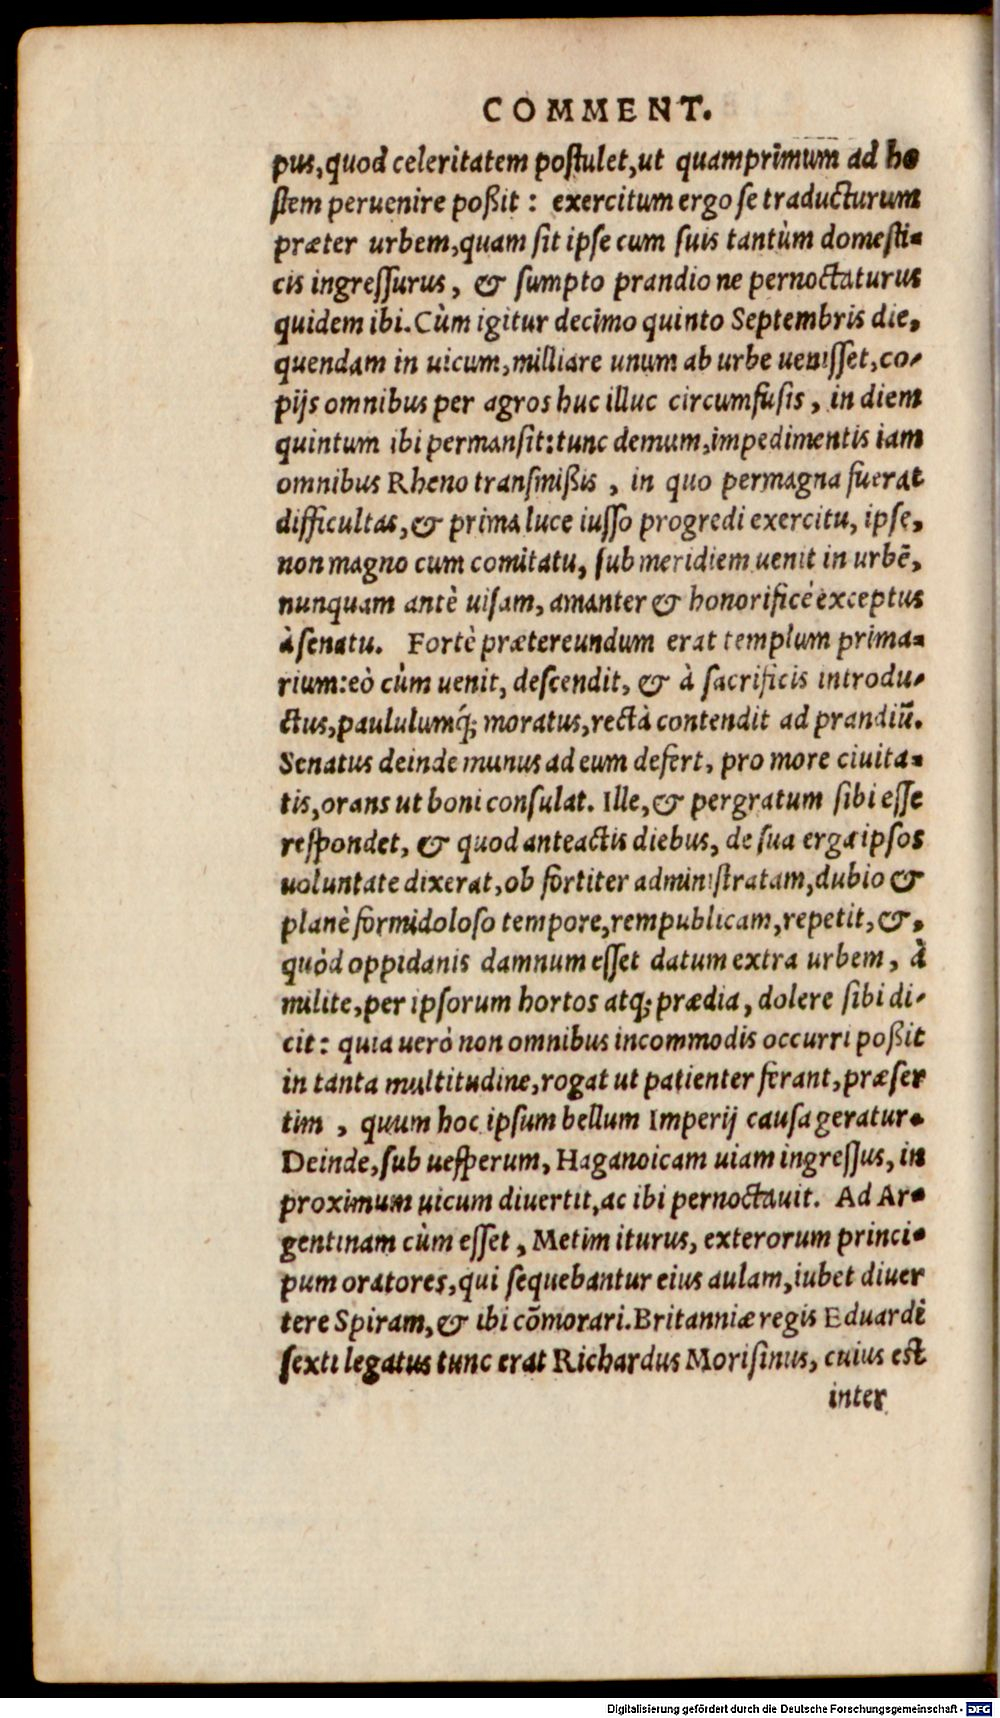 COMMENT.
pus, quod celeritatem postulet, ut quamprimum ad ho
stem peruenire poßit : exercitum ergo se traducturum
præter urbem, quam sit ipse cum suis tantùm domesti-
cis ingressurus, & sumpto prandio ne pernoctaturus
quidem ibi. Cùm igitur decimo quinto Septembris die,
quendam in uicum, milliare unum ab urbe uenisset, co-
pijs omnibus per agros huc illuc circumfusis, in diem
quintum ibi permansit: tunc demum, impedimentis iam
omnibus Rheno transmißis, in quo permagna fuerat
difficultas, & prima luce iusso progredi exercitu, ipse,
non magno cum comitatu, sub meridiem uenit in urbē,
nunquam antè uisam, amanter & honorificè exceptus
à senatu. Fortè prætereundum erat templum prima-
rium: eò cùm uenit, descendit, & à sacrificis introdu-
ctus, paululumq́; moratus, rectà contendit ad prandiū.
Senatus deinde munus ad eum defert, pro more ciuita-
tis, orans ut boni consulat. Ille, & pergratum sibi esse
respondet, & quod anteactis diebus, de sua erga ipsos
uoluntate dixerat, ob fortiter administratam, dubio &
planè formidoloso tempore, rempublicam, repetit, &,
quòd oppidanis damnum esset datum extra urbem, à
milite, per ipsorum hortos atq; prædia, dolere sibi di-
cit: quia uerò non omnibus incommodis occurri poßit
in tanta multitudine, rogat ut patienter ferant, præser
tim, quum hoc ipsum bellum Imperij causa geratur.
Deinde, sub uesperum, Haganoicam uiam ingressus, in
proximum uicum diuertit, ac ibi pernoctauit. Ad Ar-
gentinam cùm esset, Metim iturus, exterorum princi-
pum oratores, qui sequebantur eius aulam, iubet diuer
tere Spiram, & ibi cōmorari. Britanniæ regis Eduardi
sexti legatus tunc erat Richardus Morisinus, cuius est
inter
Digitalisierung gefördert durch die Deutsche Forschungsgemeinschaft - DFG